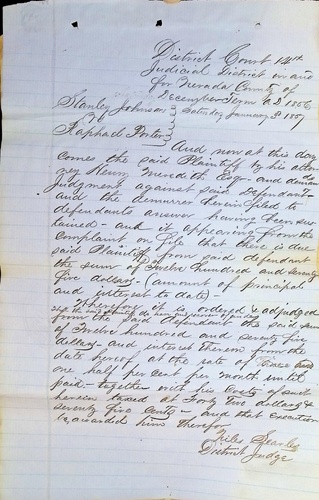 District Court 14th
Judicial District in and
for Nevada County of
December Term A.D. 1856
Stanley Johnson Saturday January 3d 1857
vs
Raphael Porter
And now at this day
comes the said Plaintiff by his attor
ney Henry Meredith Esq. and demands
Judgment against said Defendant
and the demurrer herein filed to
defendants answer having been sus
tained - and it appearing from the
Complaint on file that there is due
said Plaintiff from said defendant
the sum of Twelve hundred and seventy
five dollars - (amount of principal
and interest to date) -
Therefore it is ordered & adjudged
that the said Plaintiff do have and recover
from the said defendant the said sum
of Twelve hundred and seventy five
dollars - and interest thereon from the
date hereof at the rate of three and
one half per cent per month until
paid - together with his Costs of suit
herein taxed at Forty Two dollars &
seventy five cents - and that execution
be awarded him therefor
Niles Searls
District Judge